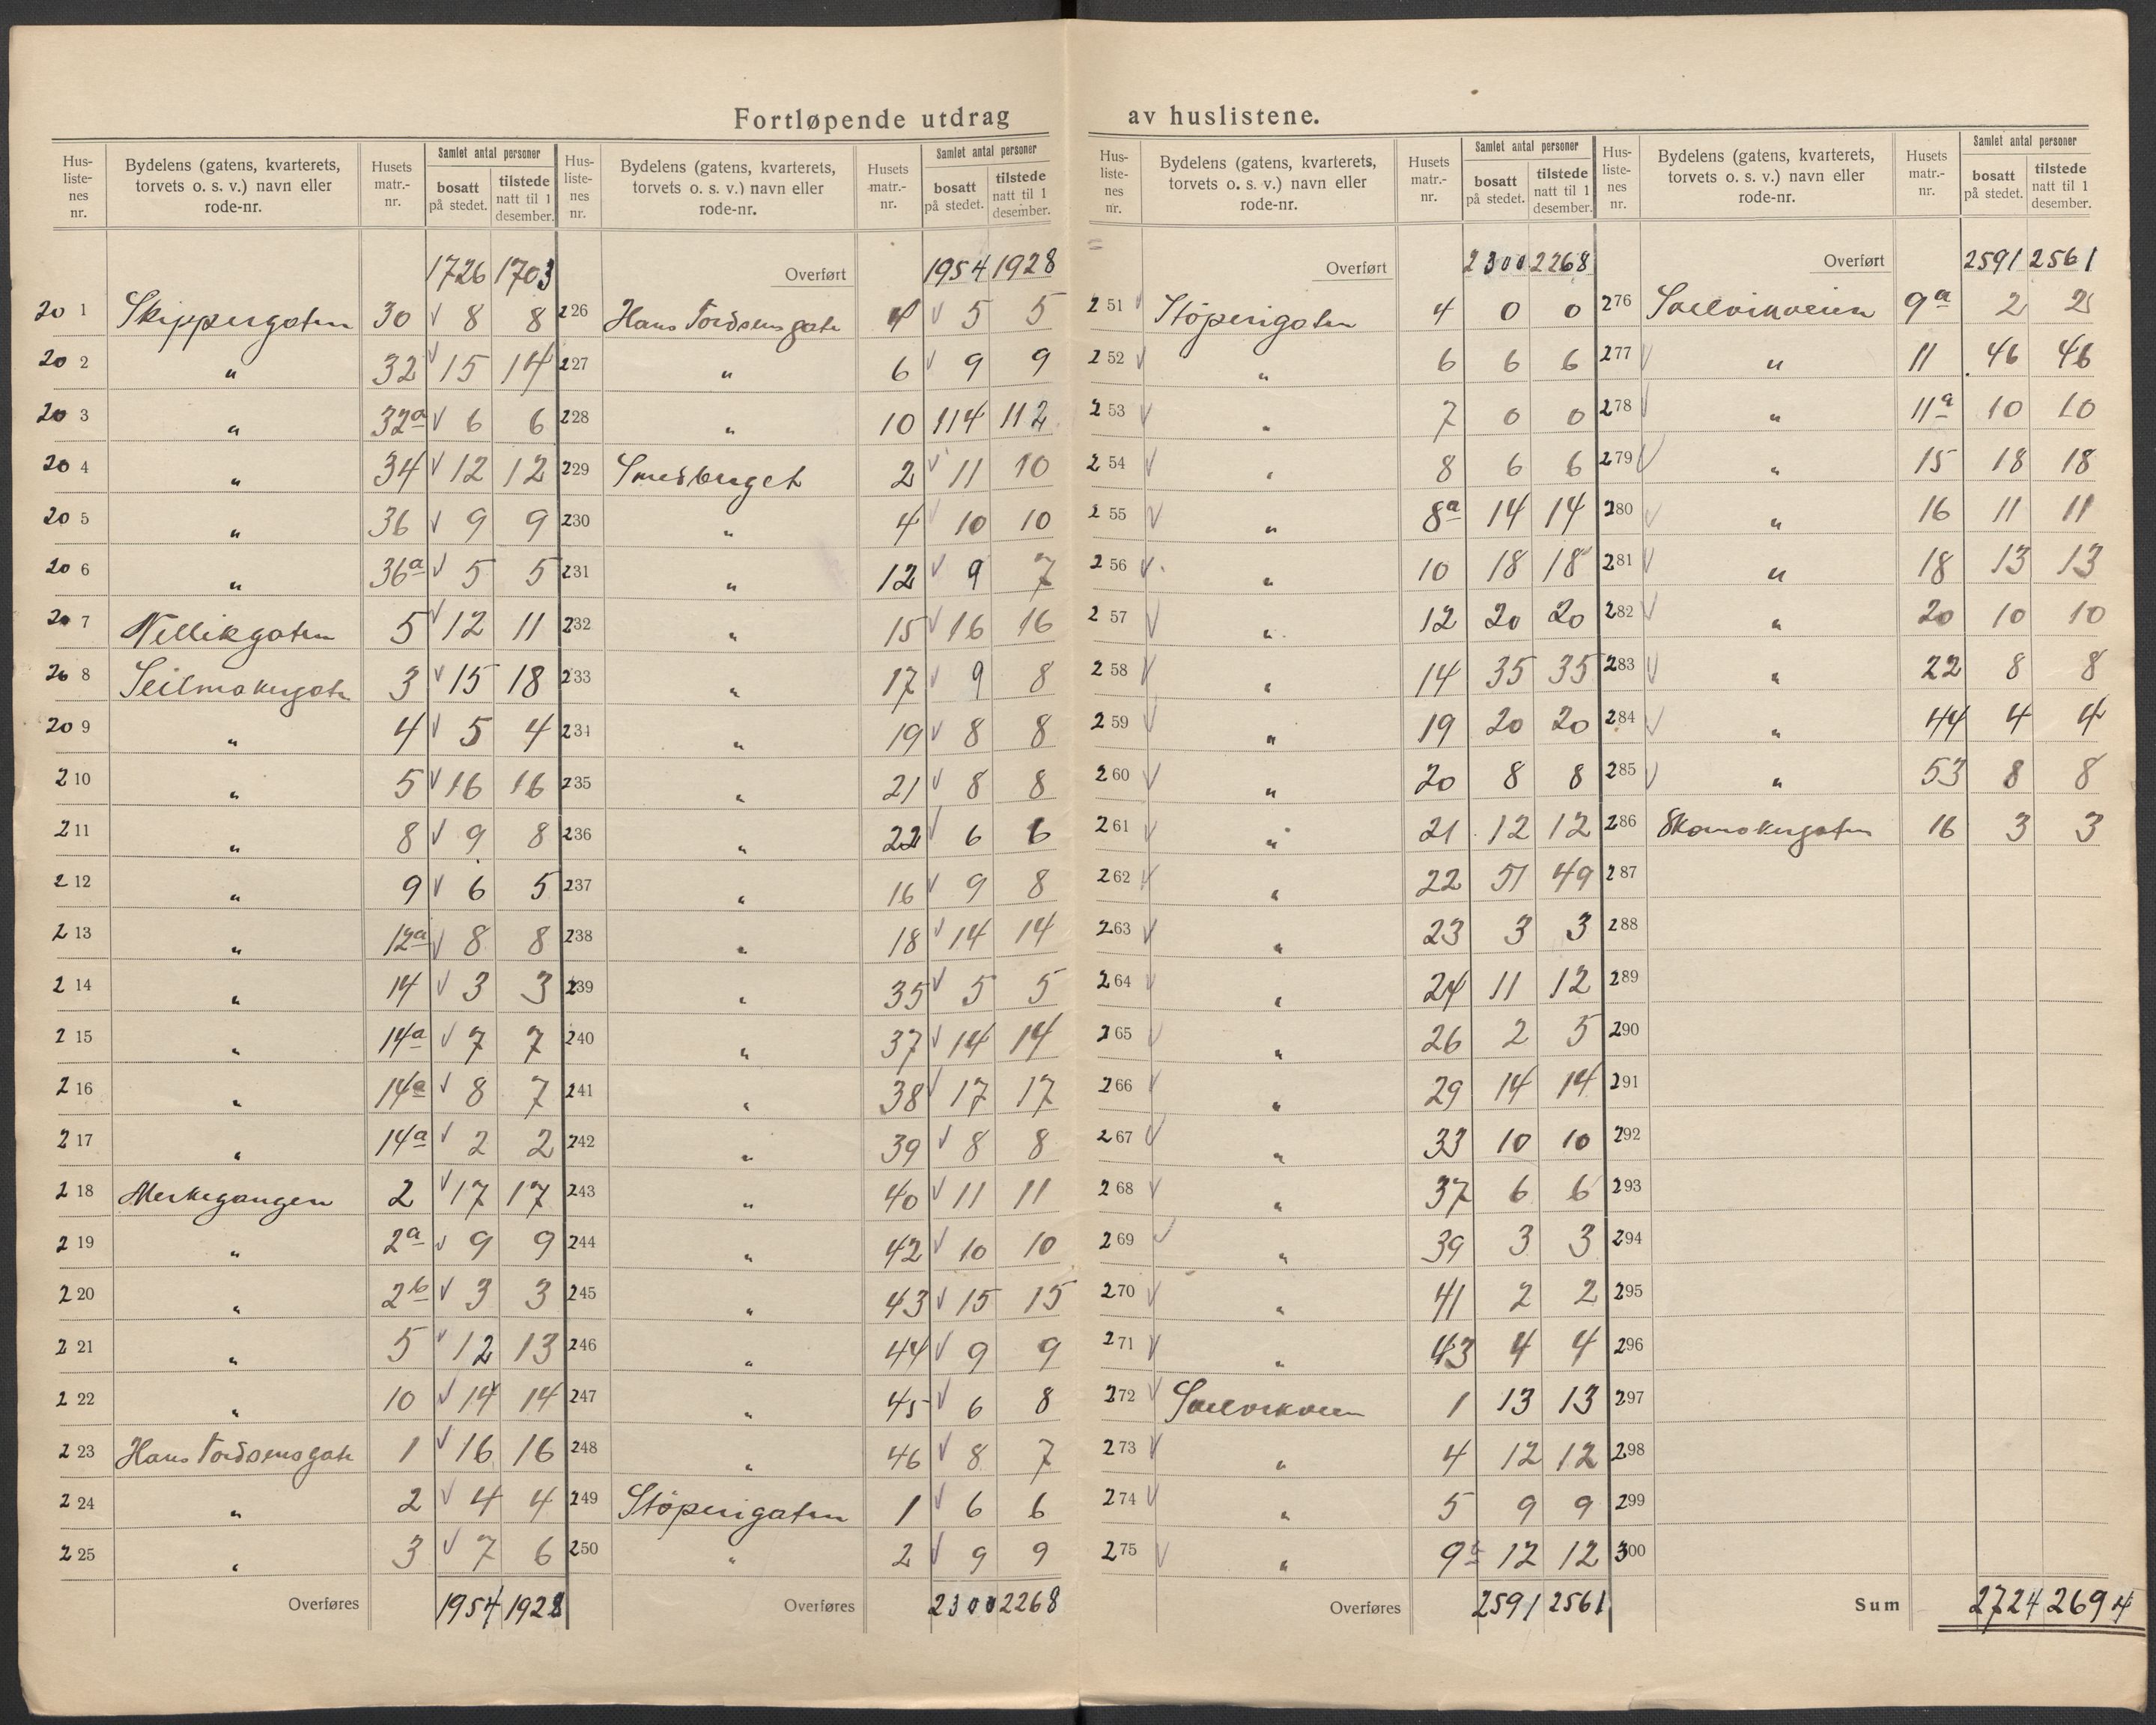 Fortløpende utdrag av huslistene.
Hus-liste-nes nr. | Bydelens (gatens, kvarterets, torvets o. s. v.) navn eller rode-nr. | Husets matr.-nr. | Samlet antal personer bosatt på stedet. | tilstede natt til 1 desember.
1726 1703
201 Skippergaten 30 v 8 8
202 " 32 v 15 14
203 " 32a v 6 6
204 " 34 v 12 12
205 " 36 v 9 9
206 " 36a v 5 5
207 Nellikgaten 5 v 12 11
208 Seilmakergate 3 v 15 18
209 " 4 v 5 4
210 " 5 v 16 16
211 " 8 v 9 8
212 " 9 v 6 5
213 " 12a v 8 8
214 " 14 v 3 3
215 " 14a v 7 7
216 " 14a v 8 7
217 " 14a v 2 2
218 Merkegangen 2 v 17 17
219 " 2a v 9 9
220 " 2b v 3 3
221 " 5 v 12 13
222 " 10 v 14 14
223 Hans Tordsensgate 1 v 16 16
224 " 2 v 4 4
225 " 3 v 7 6
Overføres 1954 1928
Hus-liste-nes nr. | Bydelens (gatens, kvarterets, torvets o. s. v.) navn eller rode-nr. | Husets matr.-nr. | Samlet antal personer bosatt på stedet. | tilstede natt til 1 desember.
Overført 1954 1928
226 Hans Tordsensgate 4 v 5 5
227 " 6 v 9 9
228 " 10 114 112
229 Smedberget 2 v 11 10
230 " 4 v 10 10
231 " 12 v 9 7
232 " 15 v 16 16
233 " 17 v 9 8
234 " 19 v 8 8
235 " 21 v 8 8
236 " 22 v 6 6
237 " 16 v 9 8
238 " 18 v 14 14
239 " 35 v 5 5
240 " 37 v 14 14
241 " 38 v 17 17
242 " 39 v 8 8
243 " 40 v 11 11
244 " 42 v 10 10
245 " 43 v 15 15
246 " 44 v 9 9
247 " 45 v 6 8
248 " 46 v 8 7
249 Støperigaten 1 v 6 6
250 " 2 v 9 9
Overføres 2300 2268
Hus-liste-nes nr. | Bydelens (gatens, kvarterets, torvets o. s. v.) navn eller rode-nr. | Husets matr.-nr. | Samlet antal personer bosatt på stedet. | tilstede natt til 1 desember.
Overført 2300 2268
251 v Støperigaten 4 0 0
252 v " 6 6 6
253 v " 7 0 0
254 v " 8 6 6
255 v " 8a 14 14
256 v " 10 18 18
257 v " 12 20 20
258 v " 14 35 35
259 v " 19 20 20
260 v " 20 8 8
261 v " 21 12 12
262 v " 22 51 49
263 v " 23 3 3
264 v " 24 11 12
265 v " 26 2 5
266 v " 29 14 14
267 v " 33 10 10
268 v " 37 6 6
269 v " 39 3 3
270 v " 41 2 2
271 v " 43 4 4
272 v Svelvikveien 1 13 13
273 v " 4 12 12
274 v " 5 9 9
275 v " 9 12 12
Overføres 2591 2561
Hus-liste-nes nr. | Bydelens (gatens, kvarterets, torvets o. s. v.) navn eller rode-nr. | Husets matr.-nr. | Samlet antal personer bosatt på stedet. | tilstede natt til 1 desember.
Overført 2591 2561
276 Svelvikveien 9a 2 2
277 v " 11 46 46
278 v " 11a 10 10
279 v " 15 18 18
280 v " 16 11 11
281 v " 18 13 13
282 v " 20 10 10
283 v " 22 8 8
284 v " 44 4 4
285 v " 53 8 8
286 Skomakergaten 16 3 3
287
288
289
290
291
292
293
294
295
296
297
298
299
300
Sum 2724 2694